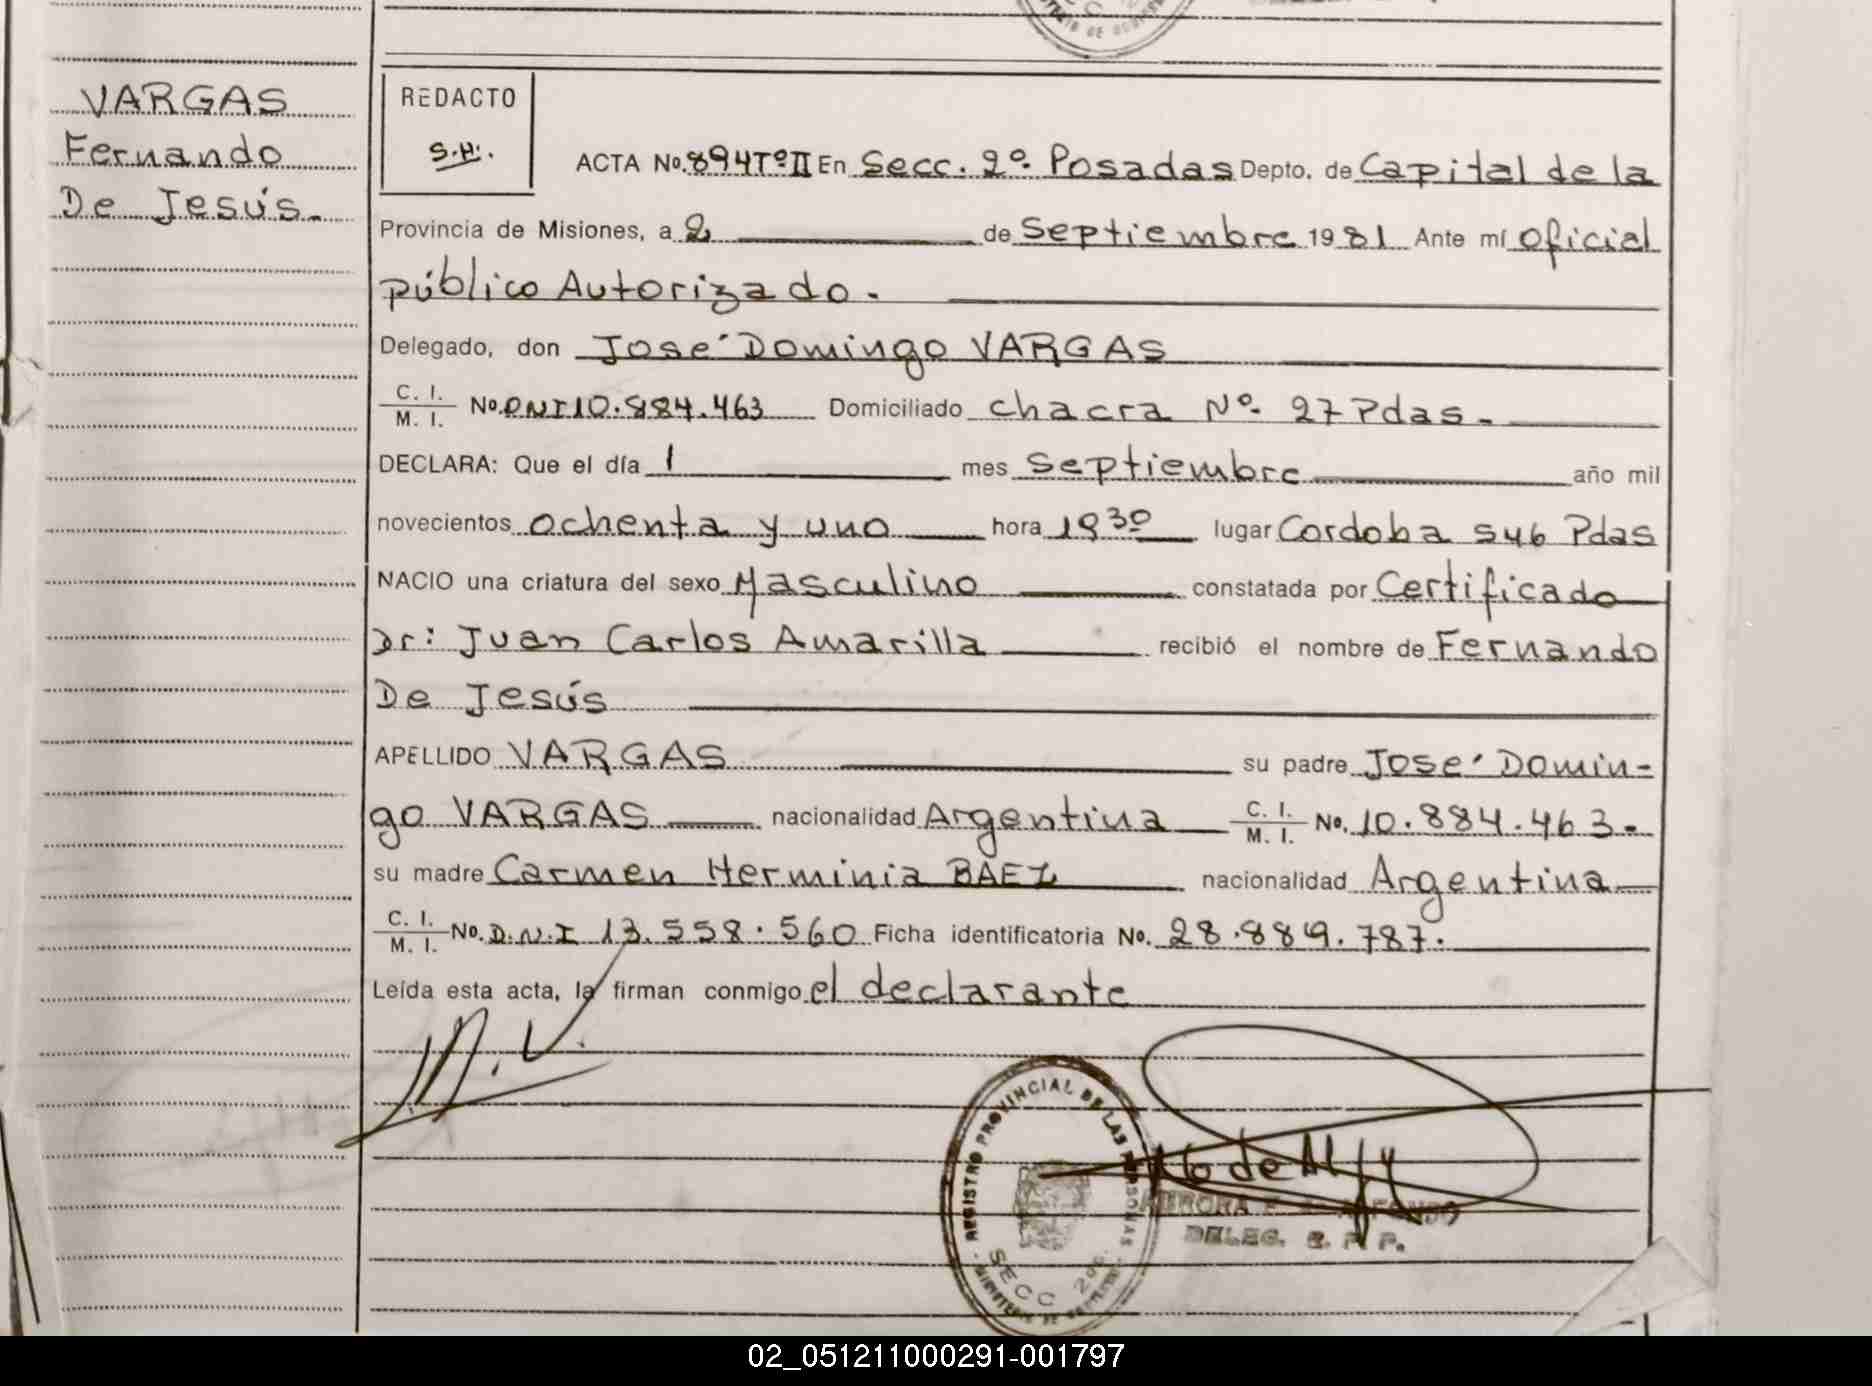 VARGAS
Fernando
De Jesús.
REDACTO
S.H.
ACTA No. 894 Tº II En Secc. 2º. Posadas Depto. de Capital de la
Provincia de Misiones, a 2 de Septiembre 1981 Ante mí oficial
público Autorizado.
Delegado, don José Domingo VARGAS
C. I. / M. I. No. DNI 10.884.463 Domiciliado chacra Nº. 27 Pdas.
DECLARA: Que el día 1 mes Septiembre año mil
novecientos ochenta y uno hora 19 30 lugar Cordoba 546 Pdas
NACIO una criatura del sexo Masculino constatada por Certificado
Dr: Juan Carlos Amarilla recibió el nombre de Fernando
De Jesús
APELLIDO VARGAS su padre José Domin-
go VARGAS nacionalidad Argentina C. I. / M. I. No. 10.884.463.
su madre Carmen Herminia BAEZ nacionalidad Argentina
C. I. / M. I. No. D.N.I 13.558.560 Ficha identificatoria No. 28.889.787.
Leída esta acta, la firman conmigo el declarante
REGISTRO PROVINCIAL DE LAS PERSONAS
SECC 2da.
MINISTERIO DE GOBIERNO
DELEG. R. P. P.
02_051211000291-001797